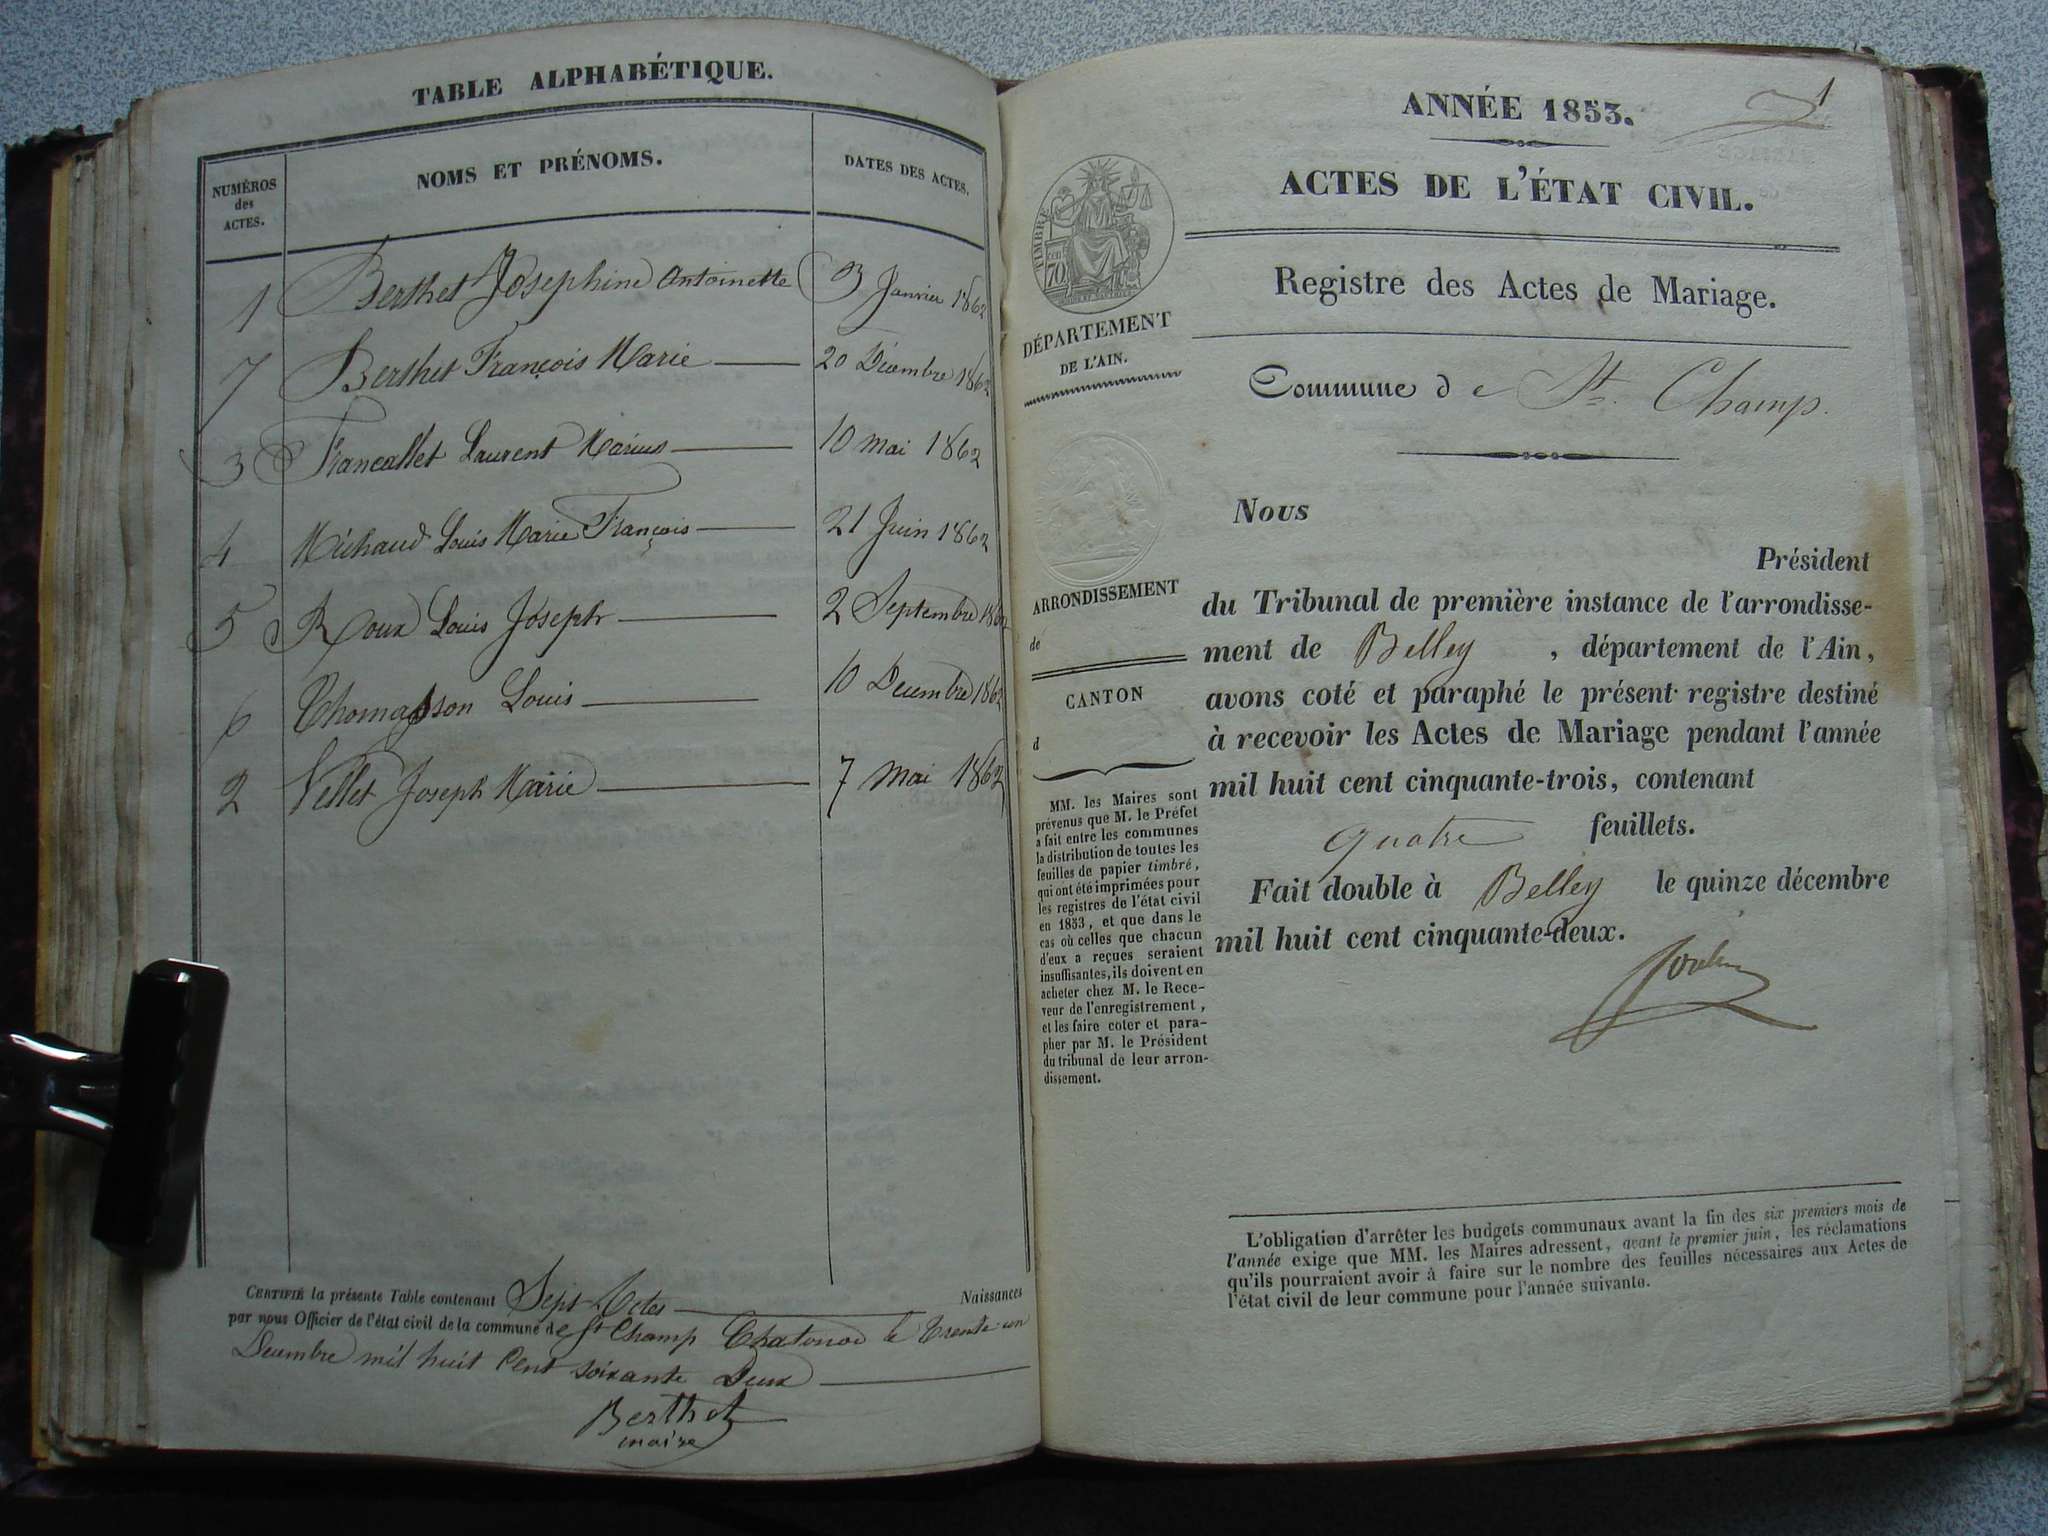 TABLE ALPHABÉTIQUE.
NUMÉROS
des
ACTES.
NOMS ET PRÉNOMS.
DATES DES ACTES.
1 Berthet Josephine Antoinette 3 Janvier 1862
7 Berthet François Marie 20 Décembre 1862
3 Francallet Laurent Marius 10 mai 1862
4 Michaud Louis Marie François 21 Juin 1862
5 Roux Louis Joseph 2 Septembre 1862
6 Thomasson Louis 10 Decembre 1862
2 Vellet Joseph Marie 7 mai 1862
CERTIFIÉ la présente Table contenant Sept Actes Naissances
par nous Officier de l'état civil de la commune de St Champ Chatonod le Trente un
Decembre mil huit Cent soixante Deux
Berthet
maire
1
ANNÉE 1853.
ACTES DE L'ÉTAT CIVIL.
Registre des Actes de Mariage.
Commune de St. Champ.
TIMBRE
70
DÉPARTEMENT
DE L'AIN.
ARRONDISSEMENT
de
CANTON
d
MM. les Maires sont
prévenus que M. le Préfet
a fait entre les communes
la distribution de toutes les
feuilles de papier timbré,
qui ont été imprimées pour
les registres de l'état civil
en 1853, et que dans le
cas où celles que chacun
d'eux a reçues seraient
insuffisantes, ils doivent en
acheter chez M. le Rece-
veur de l'enregistrement,
et les faire coter et para-
pher par M. le Président
du tribunal de leur arron-
dissement.
Nous
Président
du Tribunal de première instance de l'arrondisse-
ment de Belley, département de l'Ain,
avons coté et paraphé le présent registre destiné
à recevoir les Actes de Mariage pendant l'année
mil huit cent cinquante-trois, contenant
quatre feuillets.
Fait double à Belley le quinze décembre
mil huit cent cinquante-deux.
L'obligation d'arrêter les budgets communaux avant la fin des six premiers mois de
l'année exige que MM. les Maires adressent, avant le premier juin, les réclamations
qu'ils pourraient avoir à faire sur le nombre des feuilles nécessaires aux Actes de
l'état civil de leur commune pour l'année suivante.